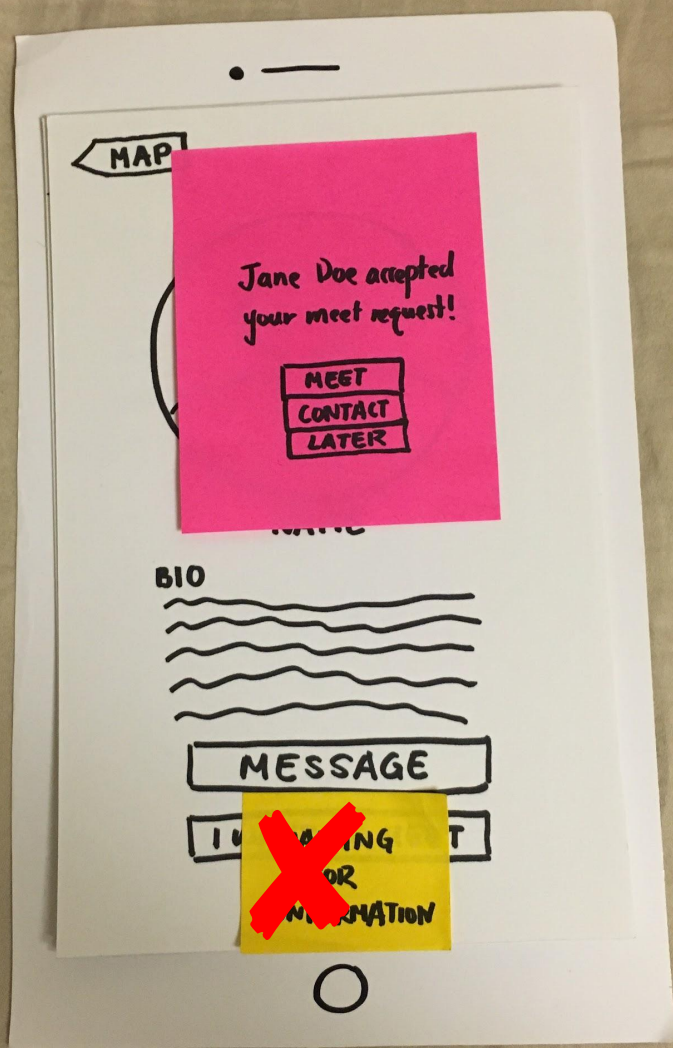 MAP
Jane Doe accepted
your meet request!
MEET
CONTACT
LATER
NAME
BIO
MESSAGE